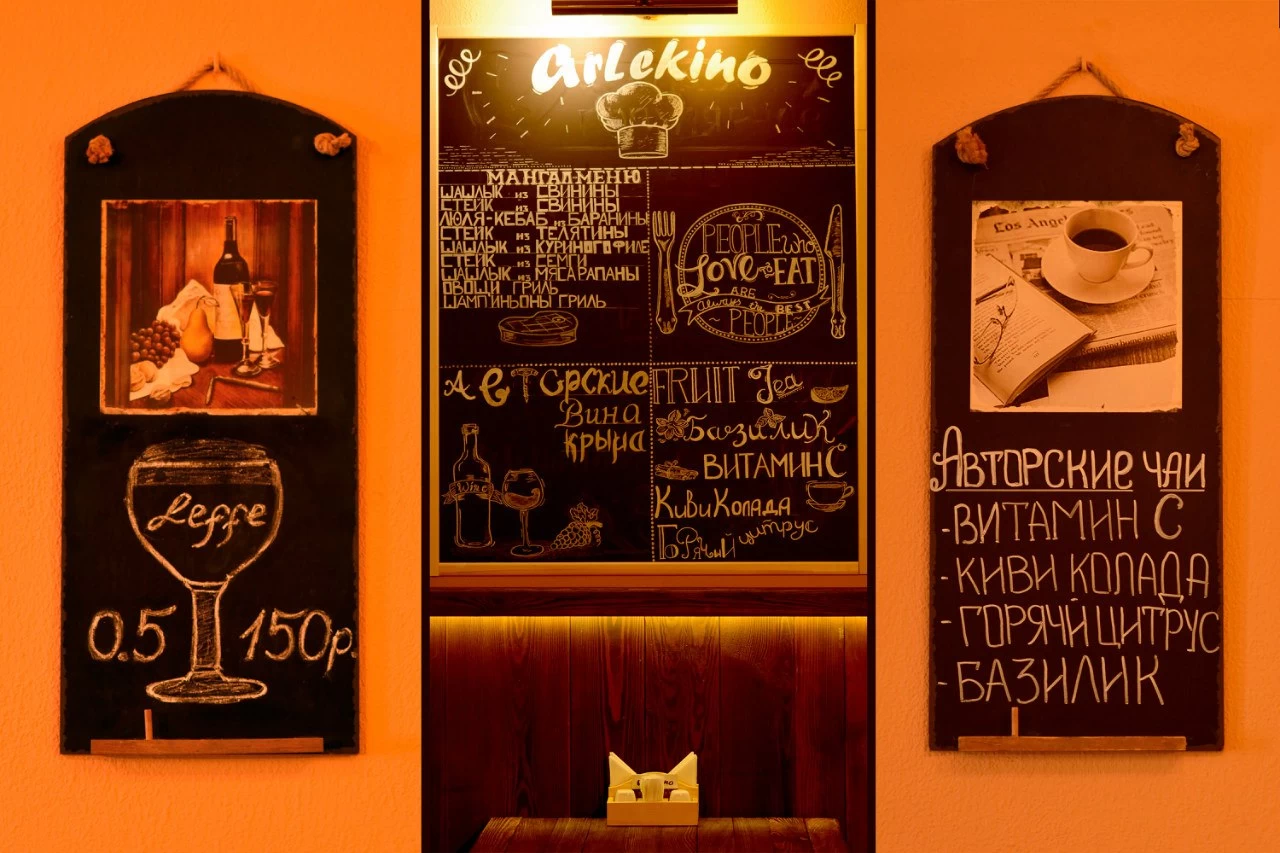 Leffe
0.5 150р.
ArLekino
МАНГАЛ-МЕНЮ
ШАШЛЫК ИЗ СВИНИНЫ
СТЕЙК ИЗ СВИНИНЫ
ЛЮЛЯ-КЕБАБ ИЗ БАРАНИНЫ
СТЕЙК ИЗ ТЕЛЯТИНЫ
ШАШЛЫК ИЗ КУРИНОГО ФИЛЕ
СТЕЙК ИЗ СЕМГИ
ШАШЛЫК ИЗ МЯСА РАПАНЫ
ОВОЩИ ГРИЛЬ
ШАМПИНЬОНЫ ГРИЛЬ
PEOPLE who
Love to EAT
ARE
Always the BEST
PEOPLE
АвТорские
Вина
крыма
Wine
FRUIT Tea
Базилик
ВИТАМИН С
Киви Колада
ГОРЯЧИЙ цитрус
Los Ange
АВТОРСКИЕ ЧАИ
-ВИТАМИН С
-КИВИ КОЛАДА
-ГОРЯЧИЙ ЦИТРУС
-БАЗИЛИК